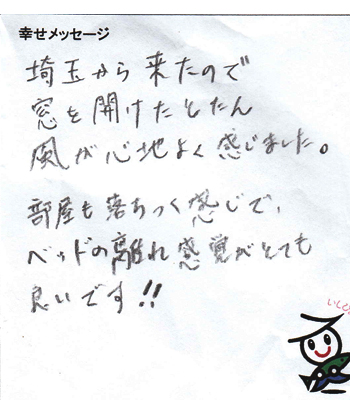 幸せメッセージ
埼玉から来たので
窓を開けたとたん
風が心地よく感じました。
部屋も落ちつく感じで、
ベッドの離れ感覚がとても
良いです!!